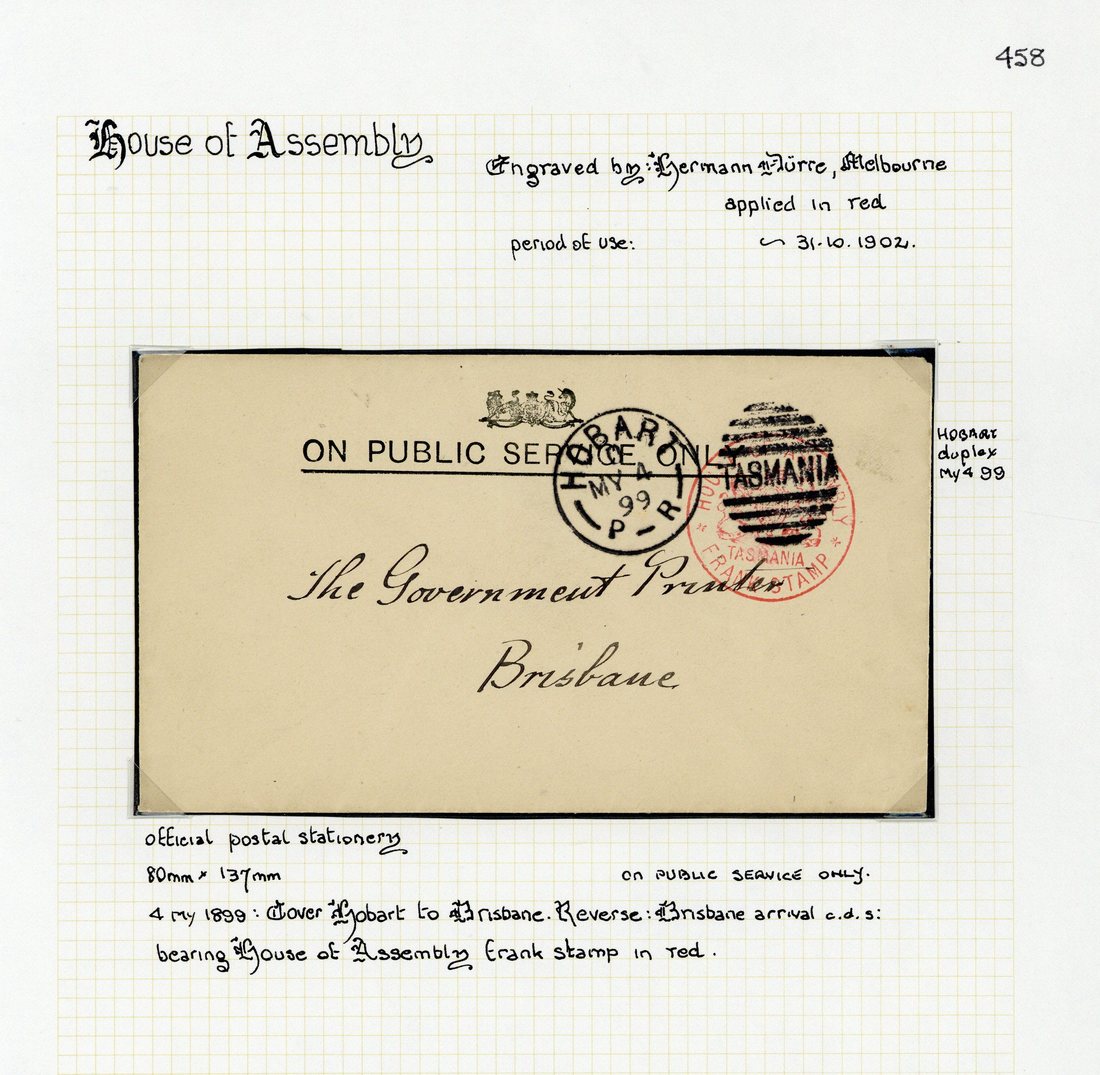 458
House of Assembly
Engraved by: Hermann Dürre, Melbourne
applied in red
period of use: ~ 31.10.1902.
ON PUBLIC SERVICE ONLY
HOBART
MY 4
99
P R
TASMANIA
HOUSE OF ASSEMBLY
TASMANIA
* FRANK STAMP *
The Government Printer
Brisbane
HOBART
duplex
My 4 99
official postal stationery
80mm x 137mm
ON PUBLIC SERVICE ONLY.
4 My 1899: Cover Hobart to Brisbane. Reverse: Brisbane arrival c.d.s:
bearing House of Assembly frank stamp in red.